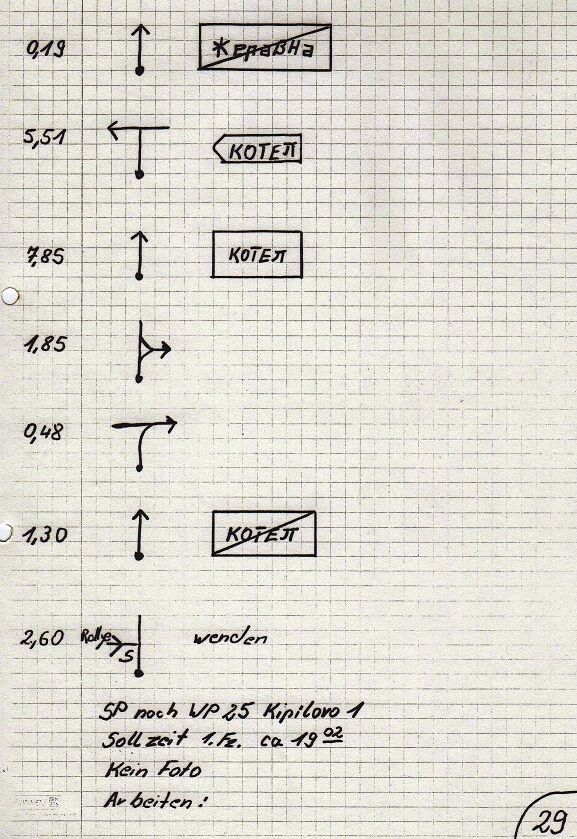 0,19 Жеравна
5,51 КОТЕЛ
7,85 КОТЕЛ
1,85
0,48
1,30 КОТЕЛ
2,60 Rallye S wenden
SP nach WP 25 Kipilovo 1
Sollzeit 1. Fz. ca 19 02
Kein Foto
Arbeiten:
29